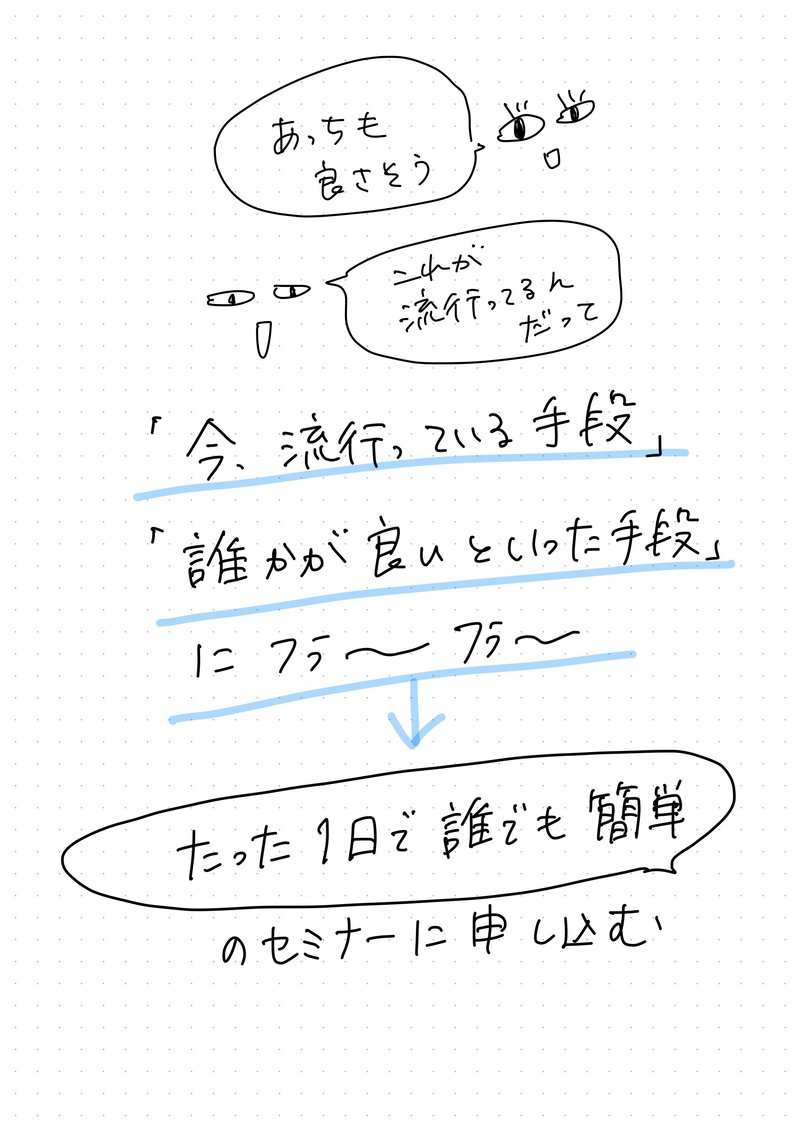 あっちも
良さそう
これが
流行ってるん
だって
「今、流行っている手段」
「誰かが良いといった手段」
にフラ〜フラ〜
たった1日で誰でも簡単
のセミナーに申し込む